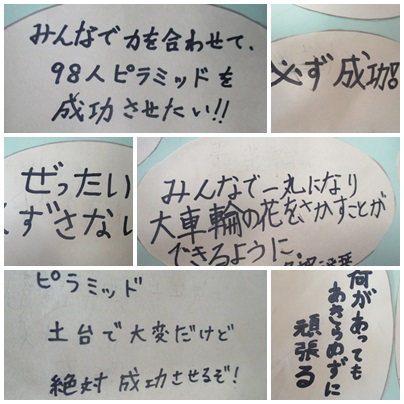 みんなで力を合わせて、
98人ピラミッドを
成功させたい!!
必ず成功
ぜったい
くずさない
みんなで一丸になり
大車輪の花をさかすことが
できるように、
ピラミッド
土台で大変だけど
絶対成功させるぞ!
何があっても
あきらめずに
頑張る